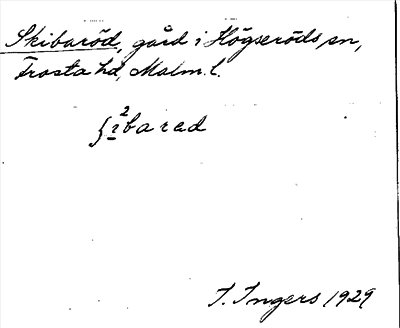 Skibaröd, gård i Högseröds sn,
Frosta hd, Malm. l.
ʃi²barad
I. Ingers 1929